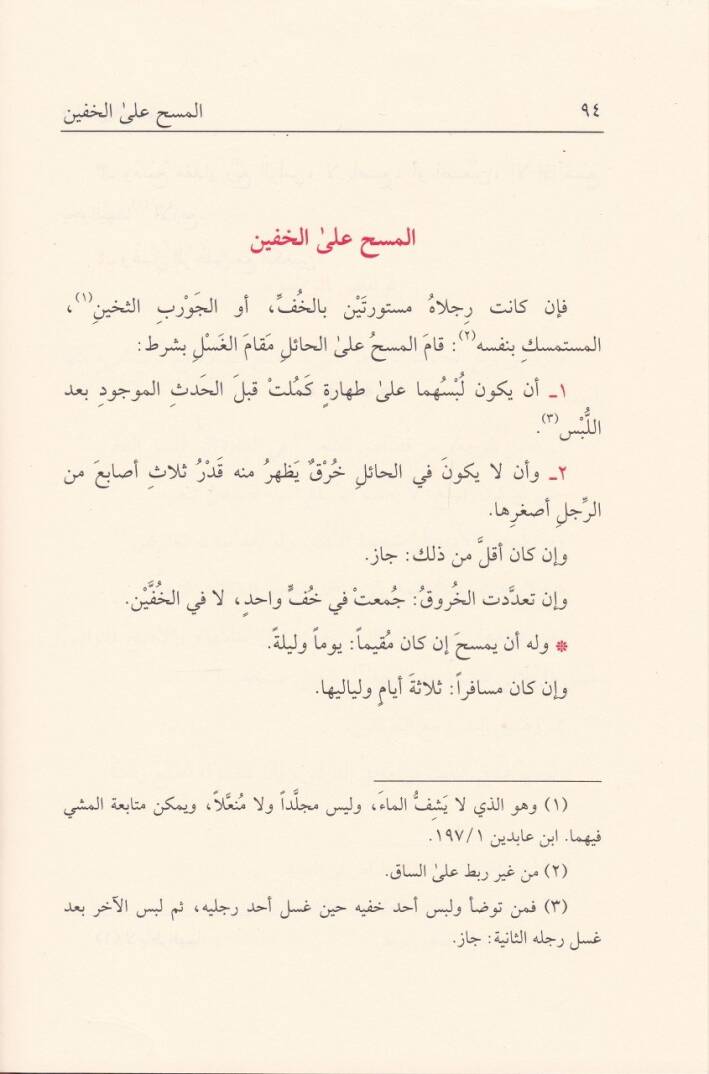 ٩٤ المسح علىٰ الخفين
المسح علىٰ الخفين
فإن كانت رِجلاهُ مستورتَيْن بالخُفِّ، أو الجَوْربِ الثخينِ(١)،
المستمسكِ بنفسه(٢): قامَ المسحُ علىٰ الحائلِ مَقامَ الغَسْلِ بشرط:
١ـ أن يكون لُبْسُهما علىٰ طهارةٍ كَمُلتْ قبلَ الحَدثِ الموجودِ بعد
اللُّبْس(٣).
٢ـ وأن لا يكونَ في الحائلِ خُرْقٌ يَظهرُ منه قَدْرُ ثلاثِ أصابعَ من
الرِّجلِ أصغرِها.
وإن كان أقلَّ من ذلك: جاز.
وإن تعدَّدت الخُروقُ: جُمعتْ في خُفٍّ واحدٍ، لا في الخُفَّيْن.
* وله أن يمسحَ إن كان مُقيماً: يوماً وليلةً.
وإن كان مسافراً: ثلاثةَ أيامٍ ولياليها.
(١) وهو الذي لا يَشِفُّ الماءَ، وليس مجلَّداً ولا مُنعَّلاً، ويمكن متابعة المشي
فيهما. ابن عابدين ١/١٩٧.
(٢) من غير ربط علىٰ الساق.
(٣) فمن توضأ ولبس أحد خفيه حين غسل أحد رجليه، ثم لبس الآخر بعد
غسل رجله الثانية: جاز.